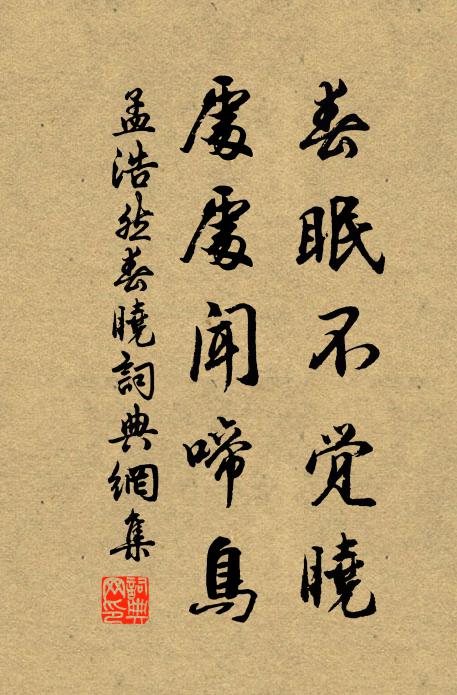 春眠不覚曉
處處聞啼鳥
孟浩然春曉詞典網集
詞典網印